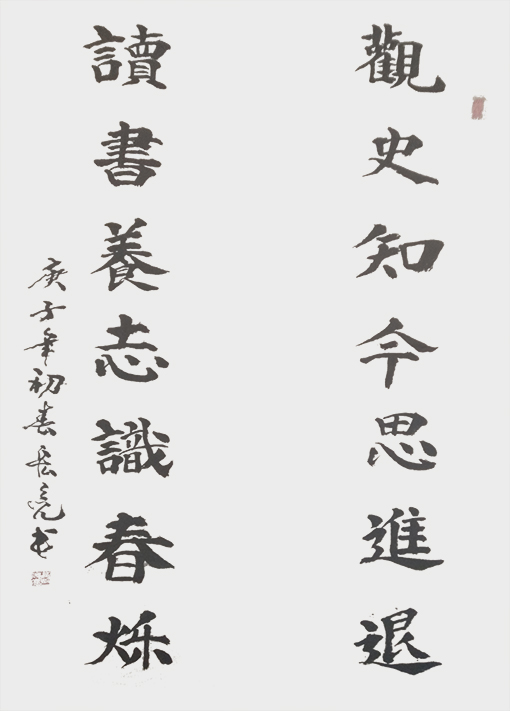 觀史知今思進退
讀書養志識春秌
庚子年初春長亮书